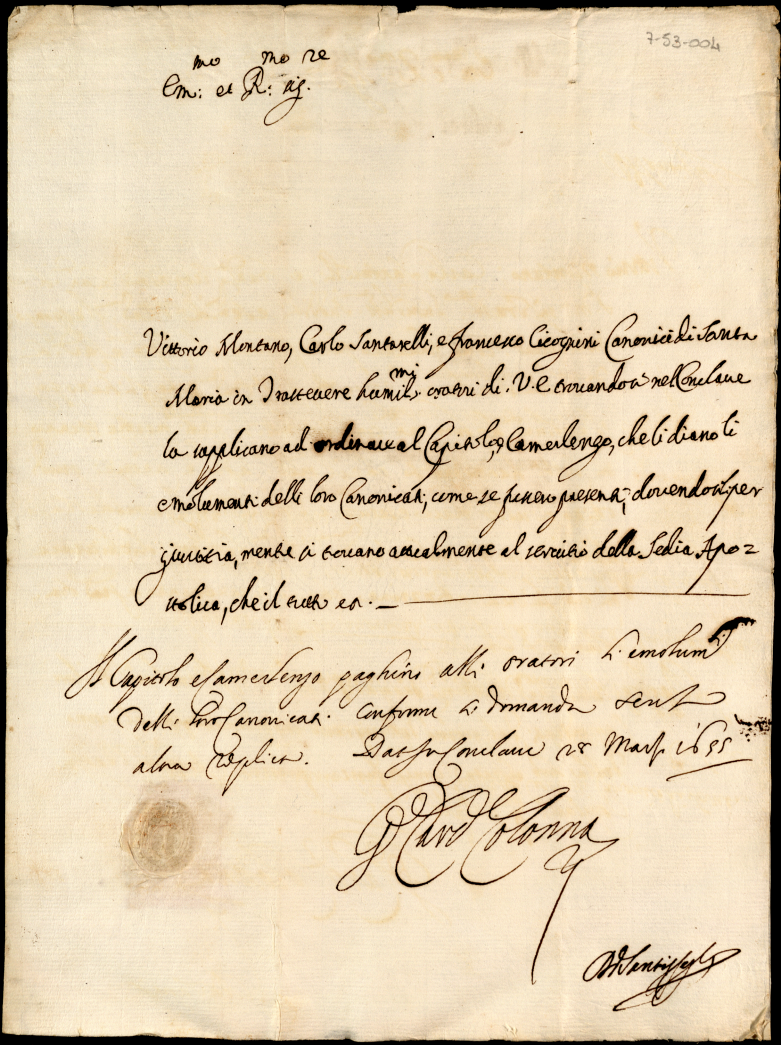 7-53-004
Em:mo et R:mo sig.re
Vittorio Montano, Carlo Santarelli, e francesco Cicognini Canonici di Santa
Maria in Trastevere humil.mi oratori di V.E trovandosi nel Conclave
la supplicano ad ordinare al Capitolo, e Camerlengo, che li diano li
emolumenti delli loro Canonicati, come se fussero presenti, dovendosili per
giustitia, mentre si trovano attualmente al servitio della Sedia Apo=
stolica, che il tutto
Il Capitolo e Camerlengo paghino alli oratori li emolum.ti
delli loro Canonicati conforme si domanda senza
altra replica. Dat In Conclave 28 Mar 1655
G Card Colonna